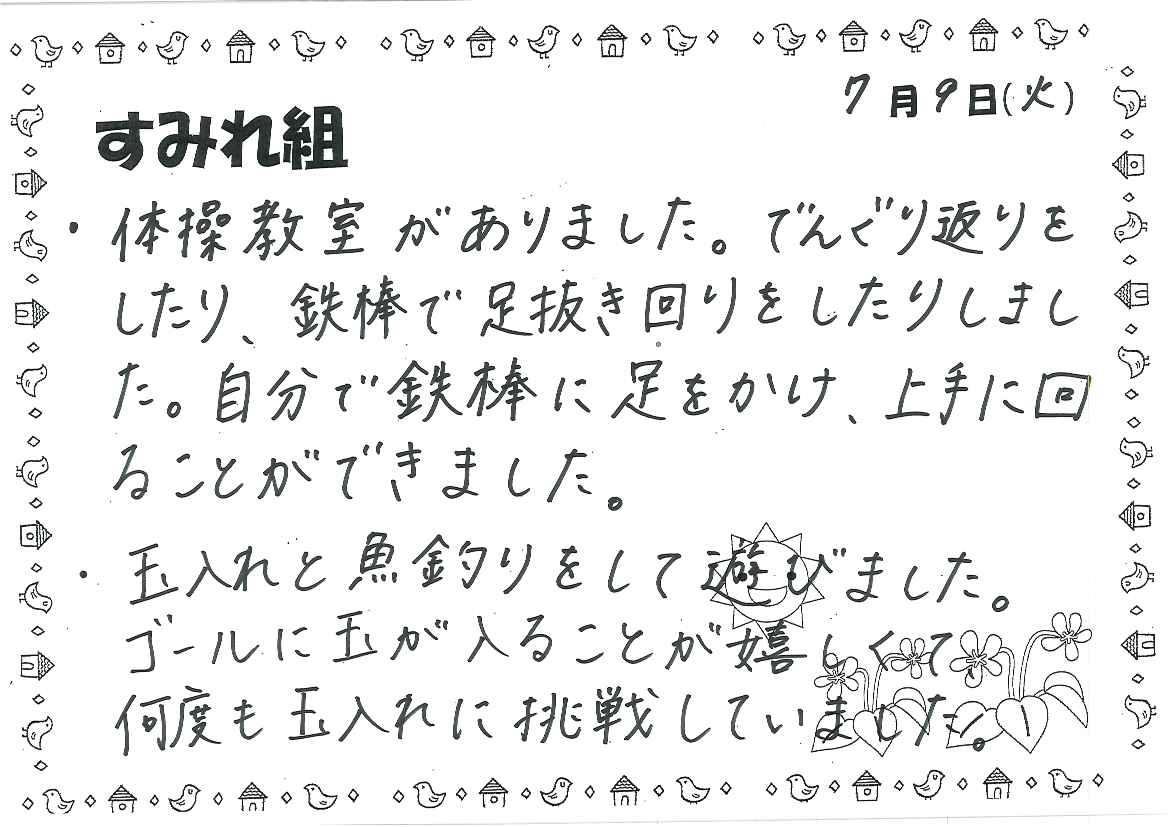 7月9日(火)
すみれ組
・体操教室がありました。でんぐり返りを
したり、鉄棒で足抜き回りをしたりしまし
た。自分で鉄棒に足をかけ、上手に回
ることができました。
・玉入れと魚釣りをして遊びました。
ゴールに玉が入ることが嬉しくて、
何度も玉入れに挑戦していました。